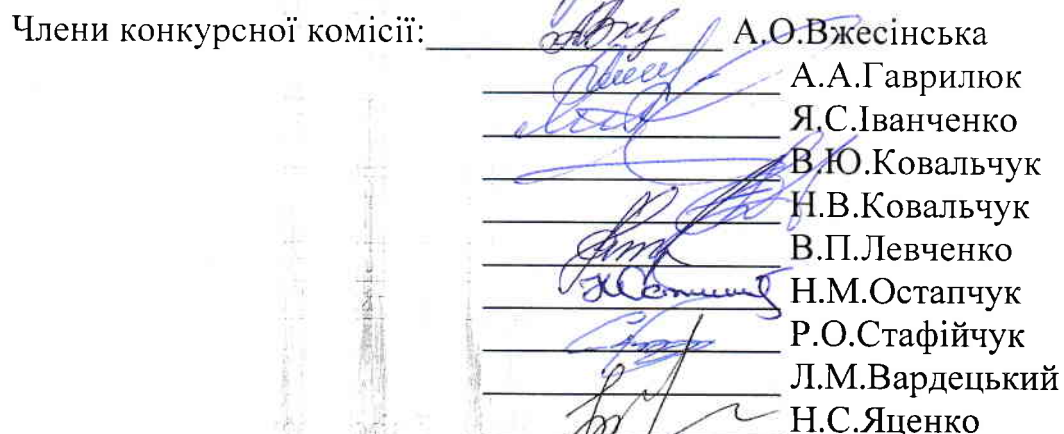 Члени конкурсної комісії: А.О.Вжесінська
А.А.Гаврилюк
Я.С.Іванченко
В.Ю.Ковальчук
Н.В.Ковальчук
В.П.Левченко
Н.М.Остапчук
Р.О.Стафійчук
Л.М.Вардецький
Н.С.Яценко